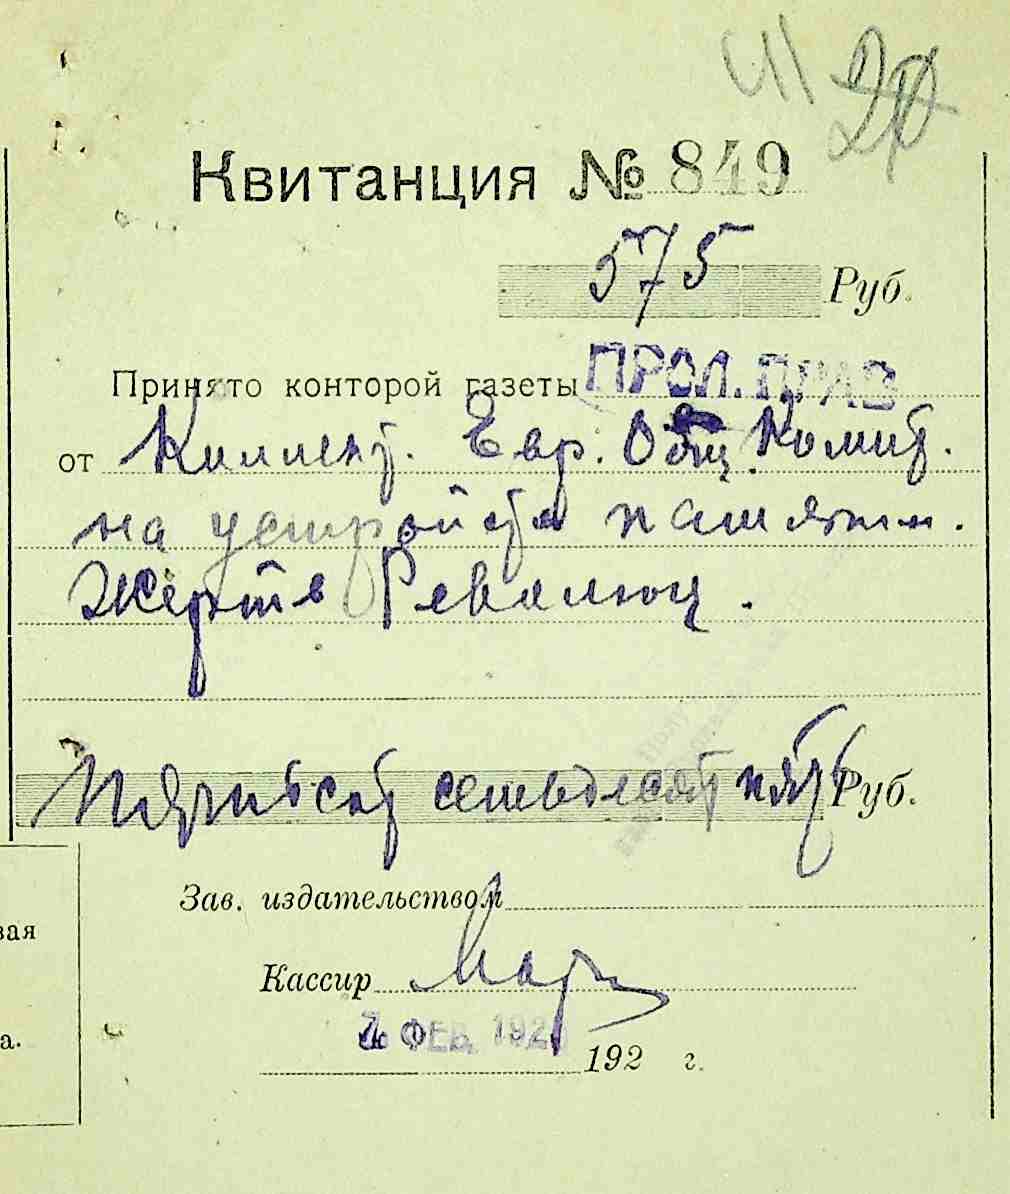 Квитанция № 849
575 Руб.
Принято конторой газеты ПРОЛ. ПРАВ
от Коллект. Евр. Общ. Комит.
на устройств памятн.
Жертв Революц.
Пятьсот семьдесят пять Руб.
Зав. издательством
Кассир
ФЕВ. 192
192 г.
вая
а.